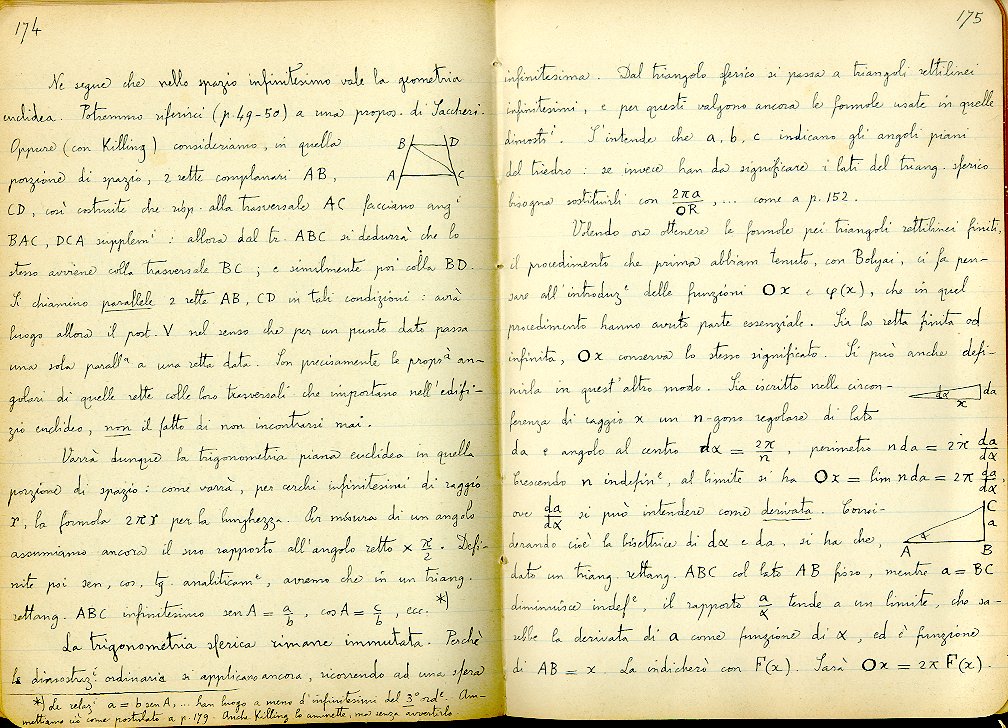 174
Ne segue che nello spazio infinitesimo vale la geometria
euclidea. Potremmo riferirci (p. 49-50) a una propos. di Saccheri.
Oppure (con Killing) consideriamo, in quella
porzione di spazio, 2 rette complanari AB,
CD, così costruite che risp. alla trasversale AC facciano ang.i
BAC, DCA supplem.i : allora dal tr. ABC si dedurrà che lo
stesso avviene colla trasversale BC ; e similmente poi colla BD.
Si chiamino parallele 2 rette AB, CD in tali condizioni : avrà
luogo allora il post. V nel senso che per un punto dato passa
una sola parall.a a una retta data. Son precisamente le propr.à an-
golari di quelle rette colle loro trasversali che importano nell'edifi-
zio euclideo, non il fatto di non incontrarsi mai.
Varrà dunque la trigonometria piana euclidea in quella
porzione di spazio : come varrà, per cerchi infinitesimi di raggio
r, la formola 2πr per la lunghezza. Per misura di un angolo
assumiamo ancora il suo rapporto all'angolo retto × π/2. Defi-
nite poi sen, cos, tg. analiticam.e, avremo che in un triang.
rettang. ABC infinitesimo sen A = a/b, cos A = c/b, ecc. *)
La trigonometria sferica rimane immutata. Perchè
le dimostraz.i ordinarie si applicano ancora, ricorrendo ad una sfera
*) Le relaz.i a = b sen A, ... han luogo a meno d'infinitesimi del 3° ord.e Am-
mettiamo ciò come postulato a p. 179. Anche Killing lo ammette, ma senza avvertirlo
B D
A C
175
infinitesima. Dal triangolo sferico si passa a triangoli rettilinei
infinitesimi, e per questi valgono ancora le formole usate in quelle
dimostr.i S'intende che a, b, c indicano gli angoli piani
del triedro : se invece han da significare i lati del triang. sferico
bisogna sostituirli con 2πa/OR, ... come a p. 152.
Volendo ora ottenere le formole pei triangoli rettilinei finiti,
il procedimento che prima abbiam tenuto, con Bolyai, ci fa pen-
sare all'introduz.e delle funzioni Ox e φ(x), che in quel
procedimento hanno avuto parte essenziale. Sia la retta finita od
infinita, Ox conserva lo stesso significato. Si può anche defi-
nirla in quest'altro modo. Sia iscritto nella circon-
ferenza di raggio x un n-gono regolare di lato
da e angolo al centro dα = 2π/n, perimetro n da = 2π da/dα
Crescendo n indefin.e, al limite si ha Ox = lim n da = 2π da/dα,
ove da/dα si può intendere come derivata. Consi-
derando cioè la bisettrice di dα e da, si ha che,
dato un triang. rettang. ABC col lato AB fisso, mentre a = BC
diminuisce indef.e, il rapporto a/α tende a un limite, che sa-
rebbe la derivata di a come funzione di α, ed è funzione
di AB = x. La indicherò con F(x). Sarà Ox = 2π F(x).
dα da
x
C
a
α
A B